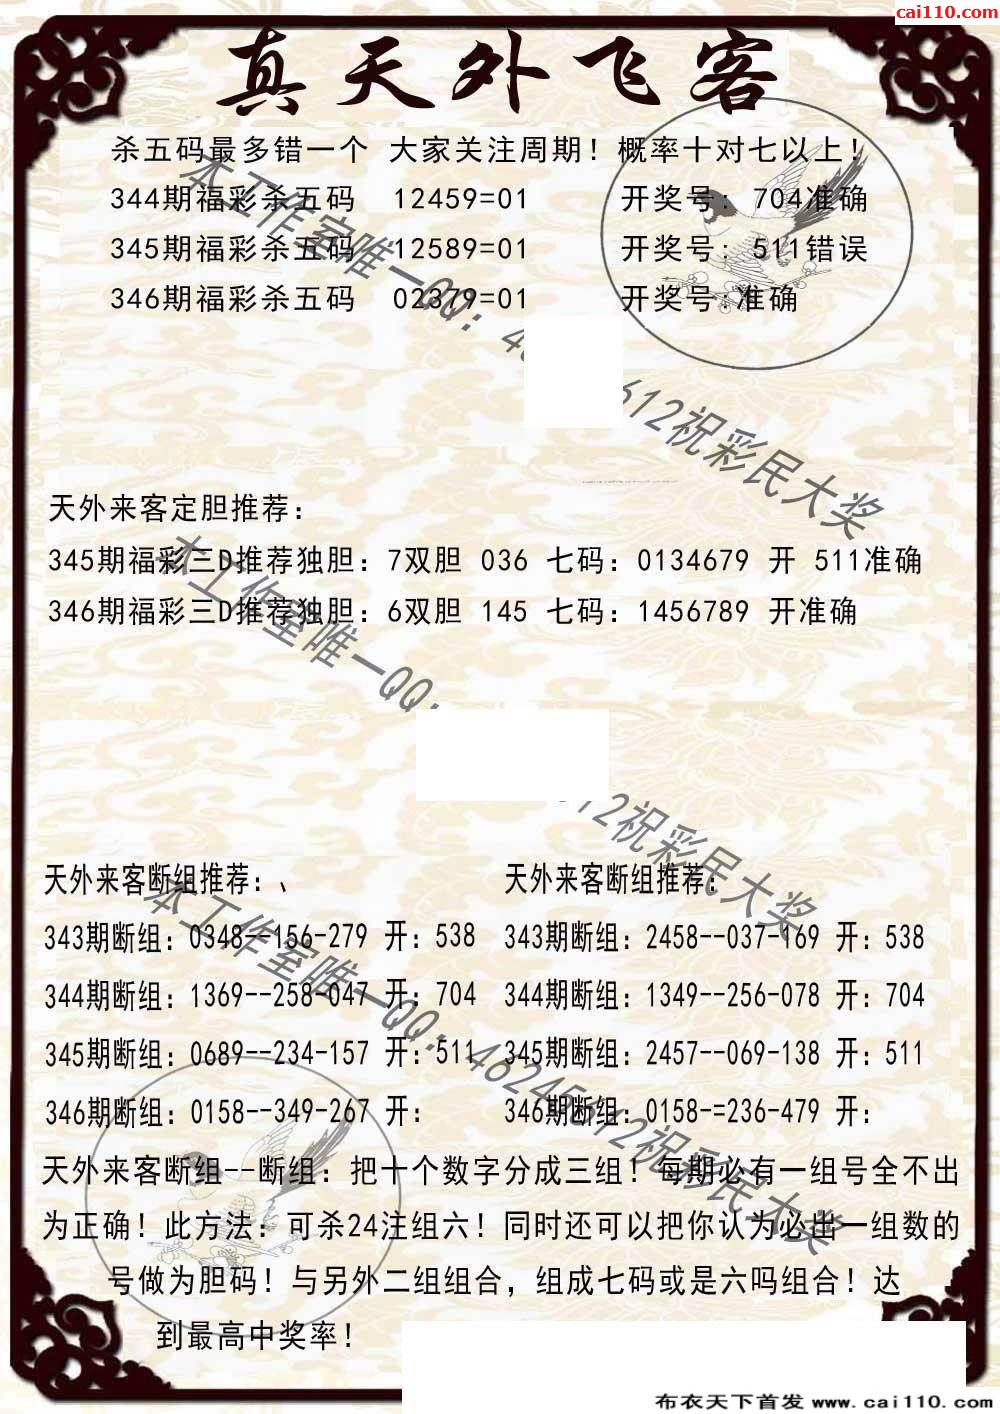 cai110.com
真天外飞客
杀五码最多错一个 大家关注周期！概率十对七以上！
344期福彩杀五码 12459=01 开奖号: 704准确
345期福彩杀五码 12589=01 开奖号: 511错误
346期福彩杀五码 02379=01 开奖号:准确
本工作室唯一QQ: 4 612祝彩民大奖
天外来客定胆推荐:
345期福彩三D推荐独胆: 7双胆 036 七码: 0134679 开 511准确
346期福彩三D推荐独胆: 6双胆 145 七码: 1456789 开准确
本工作室唯一QQ: 612祝彩民大奖
天外来客断组推荐:、 天外来客断组推荐:
343期断组: 0348--156-279 开: 538 343期断组: 2458--037-169 开: 538
344期断组: 1369--258-047 开: 704 344期断组: 1349--256-078 开: 704
345期断组: 0689--234-157 开: 511 345期断组: 2457--069-138 开: 511
346期断组: 0158--349-267 开: 346期断组: 0158-=236-479 开:
本工作室唯一QQ: 46245612祝彩民大奖
天外来客断组--断组: 把十个数字分成三组！每期必有一组号全不出
为正确！此方法: 可杀24注组六！同时还可以把你认为必出一组数的
号做为胆码！与另外二组组合, 组成七码或是六吗组合！达
到最高中奖率！
布衣天下首发 www.cai110.com